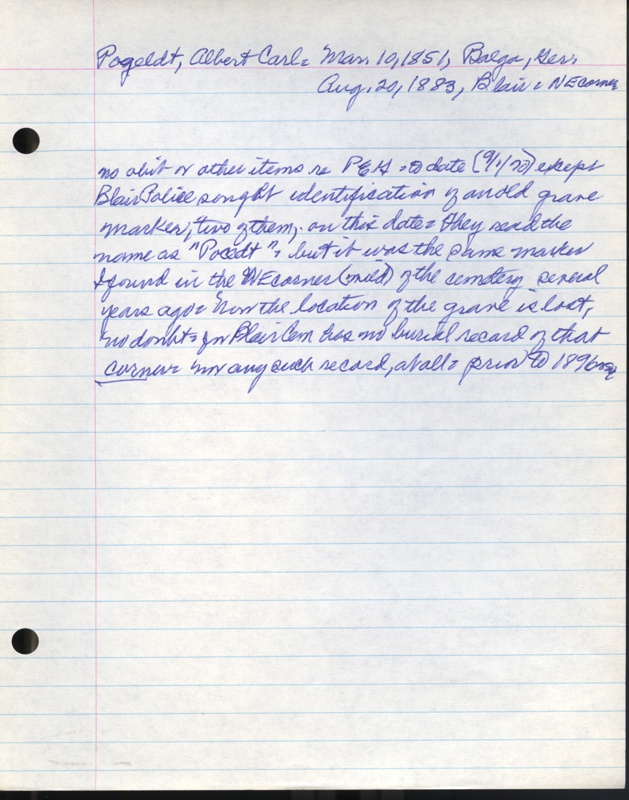 Pogeldt, Albert Carl = Mar. 10, 1851, Balga, Ger.
Aug. 20, 1883, Blair = NE corner
no obit or other items re = to date (9/1/70) except
Blair Police sought identification of an old grave
marker, two of them, on this date = they read the
name as "Pocedt" = but it was the same marker
I found in the NE corner of the cemetery several
years ago = now the location of the grave is lost,
no doubt = for Blair Cem has no burial record of that
corner = nor any such record, at all = prior to 1896